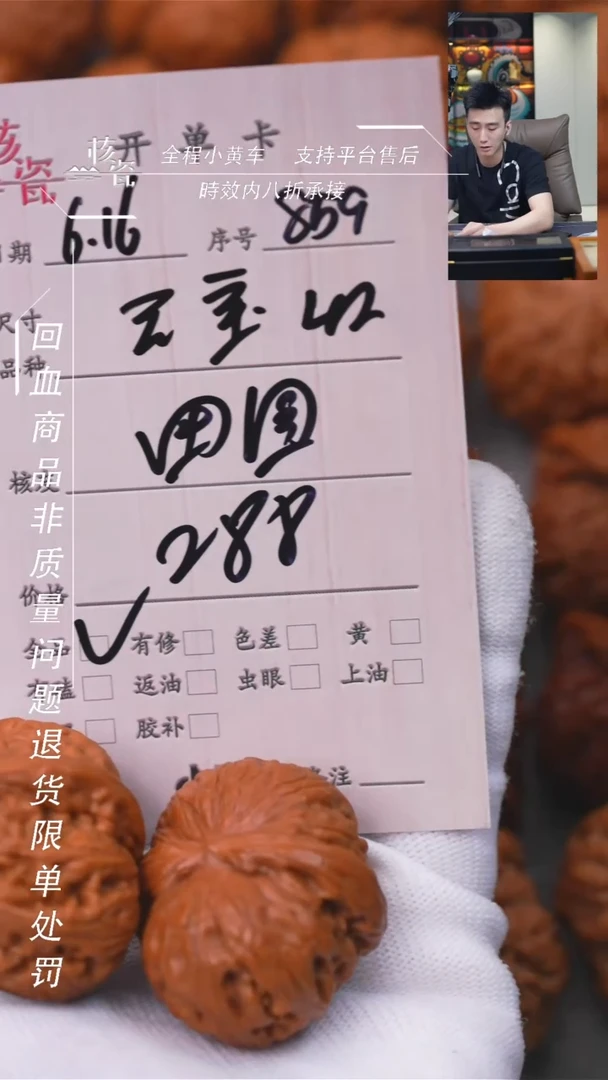 核瓷
开单卡
核瓷
全程小黄车 支持平台售后
時效内八折承接
6.16 序号 859
尺寸
王宝 42
品种
田园
288
价格
有修 色差 黄
返油 虫眼 上油
胶补
注
回血商品非质量问题退货限单处罚